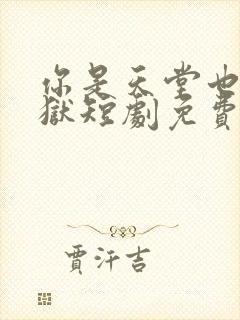 你是天堂也
獄短劇免費
賈汗吉